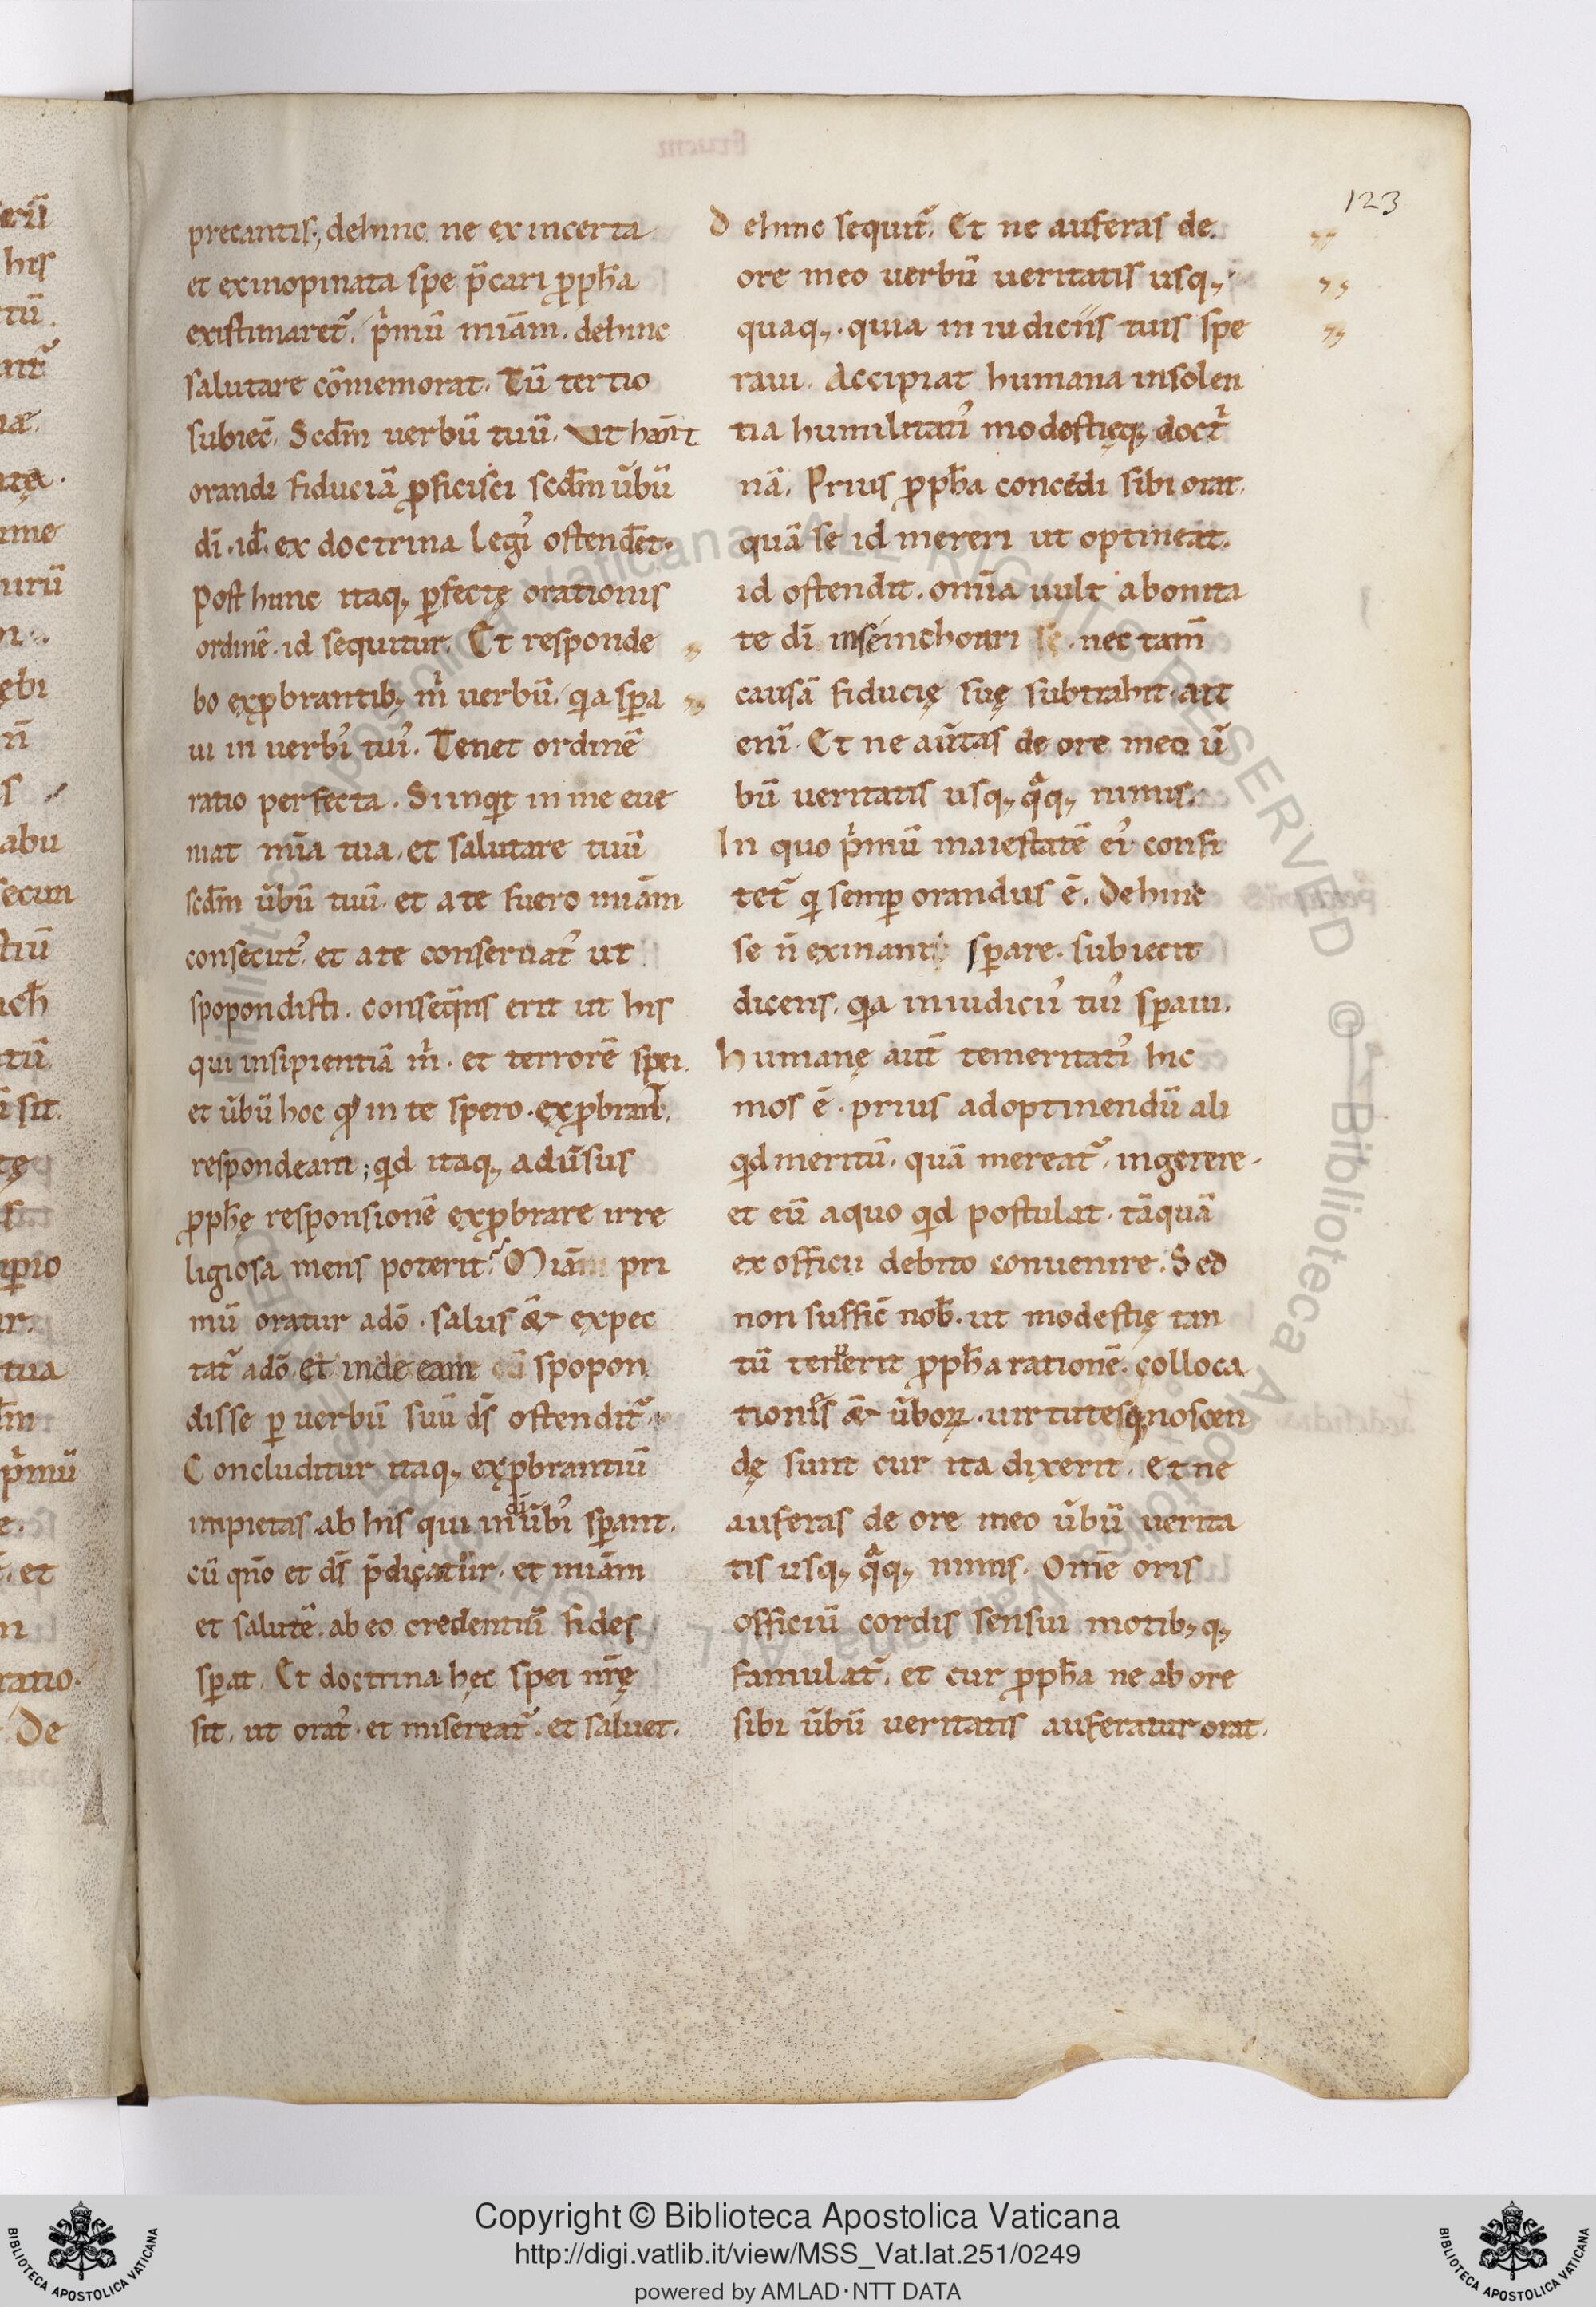 123
precantis; dehinc ne ex incerta
et exinopinata spe p̄cari ꝓph̄a
existimaret᷑. p̍mū miām. dehinc
salutare cōmemorat. Tū tertio
subiec̄. Scd̄m uerbū tuū. Ut hanc
orandi fiduciā ꝓficisci scd̄m ūbū
dī .id̄. ex doctrina legꝰ ostend̄et.
Post hunc itaq; ꝑfectę orationis
ordinē. id sequitur. Et responde
bo exꝓbrantib; m̍ uerbū. qia sꝑa
ui in uerbꝰ tuꝰ. Tenet ordinē
ratio perfecta. Si inqit in me eue
niat mīa tua. et salutare tuū
scd̄m ūbū tuū. et a te fuero miām
consecutꝰ. et a te conseruatꝰ ut
spopondisti. conseq̄ns erit ut his
qui insipientiā m̍. et terrorē spei.
et ūbū hoc qd in te spero. exꝓbrant᷑.
respondeam; qid itaq; adūsus
ꝓph̄ę responsionē exꝓbrare irre
ligiosa mens poterit? Miām pri
mū oratur adō. salus & expec
tat᷑ adō. et inde eam cū spopon
disse ꝑ uerbū suū dс̄ ostendit᷑.
Concluditur itaq; exꝓbrantiū
impietas ab his qui in dī ūbꝰ sꝑant.
cū qn̄o et dс̄ p̄dicatur. et miām
et salutē. ab eo credentiū fides
sꝑat. Et doctrina hęc spei nr̄ę
sit. ut oratꝰ. et misereat᷑. et saluet.
Dehinc sequit᷑. Et ne auferas de
ore meo uerbū ueritatis usq;
quaq;. quia in iudiciis tuis spe
raui. Accipiat humana insolen
tia humilitatꝰ modestięq; doct̍
nā. Prius ꝓph̄a concędi sibi orat.
quā se id mereri ut optineat.
id ostendit. omīa uult a bonita
te dī in se inchoari se. nec tam̄
causā fiducię suę subtrahit. ait
enī. Et ne auf̄as de ore meo ū
bū ueritatis usq; qͣq; nimis.
In quo p̍mū maiestatē eiꝰ confi
tet᷑ qi semꝑ orandus ē. Dehinc
se n̄ exinanit᷑ sꝑare. subiecit
dicens. qia in iudiciꝰ tuꝰ sꝑaui.
Humanę aut̄ temeritatꝰ hic
mos ē. prius ad optinendū ali
qid meritū. quā mereat᷑. ingerere.
et eū a quo qid postulat. tāquā
ex officii debito conuenire. Sed
non suffic̄ nob̄. ut modestię tan
tū tenuerit ꝓph̄a rationē. colloca
tionis & ūboꝝ. uirtutesq; noscen
dę sunt cur ita dixerit. Et ne
auferas de ore meo ūbū uerita
tis usq; qͣq; nimis. Om̄e oris
officiū cordis sensui motib;q;
famulat᷑. et cur ꝓph̄a ne ab ore
sibi ūbū ueritatis auferatur orat.
Copyright © Biblioteca Apostolica Vaticana
http://digi.vatlib.it/view/MSS_Vat.lat.251/0249
powered by AMLAD·NTT DATA